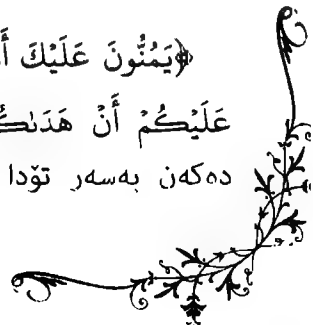 ﴿يَمُنُّونَ عَلَيْكَ
عَلَيْكُمْ أَنْ
دەکەن بەسەر تۆدا